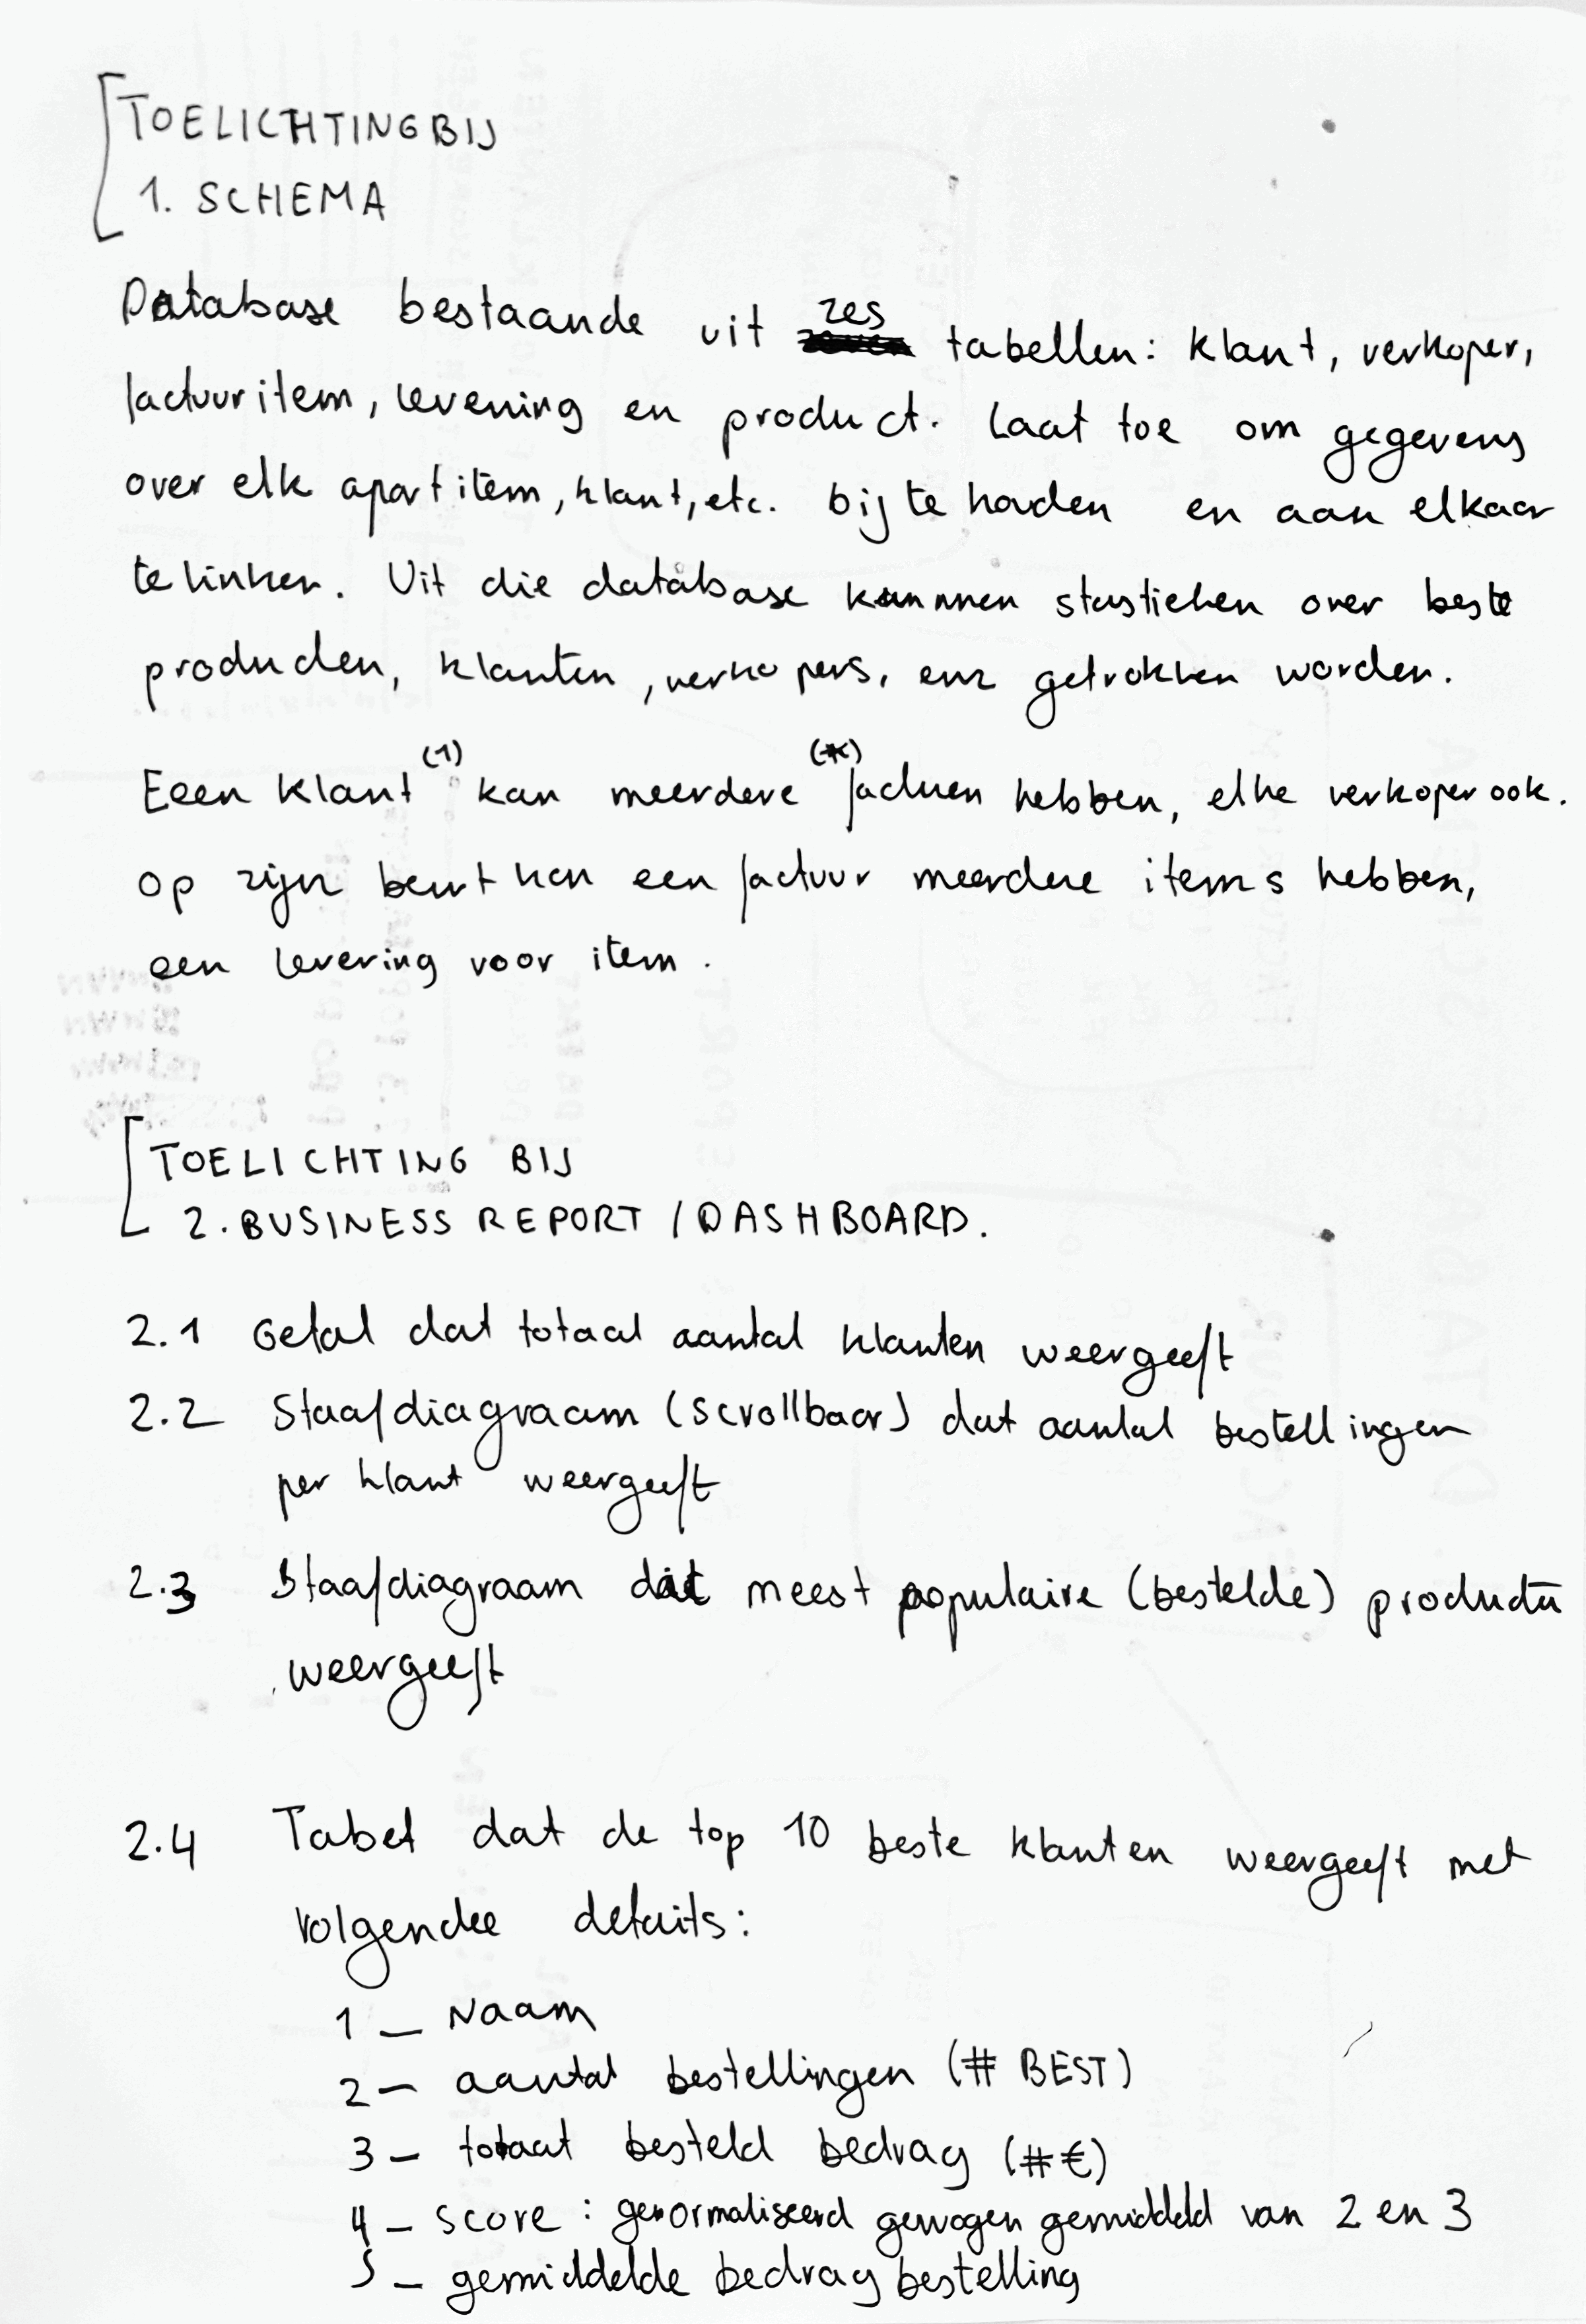 TOELICHTING BIJ
1. SCHEMA
Database bestaande uit zes tabellen: klant, verkoper,
factuuritem, levering en product. Laat toe om gegevens
over elk apart item, klant, etc. bij te houden en aan elkaar
te linken. Uit die database kunnen stastieken over beste
producten, klanten, verkopers, enz getrokken worden.
Eeen klant (1) kan meerdere (*) facturen hebben, elke verkoper ook.
Op zijn beurt kan een factuur meerdere items hebben,
een levering voor item.
TOELICHTING BIJ
2. BUSINESS REPORT / DASHBOARD.
2.1 Getal dat totaal aantal klanten weergeeft
2.2 Staafdiagraam (scrollbaar) dat aantal bestellingen
per klant weergeeft
2.3 Staafdiagraam dat meest populaire (bestelde) producten
weergeeft
2.4 Tabel dat de top 10 beste klanten weergeeft met
volgende details:
1 – Naam
2 – aantal bestellingen (# BEST)
3 – totaal besteld bedrag (#€)
4 – score : genormaliseerd gewogen gemiddeld van 2 en 3
5 – gemiddelde bedrag bestelling